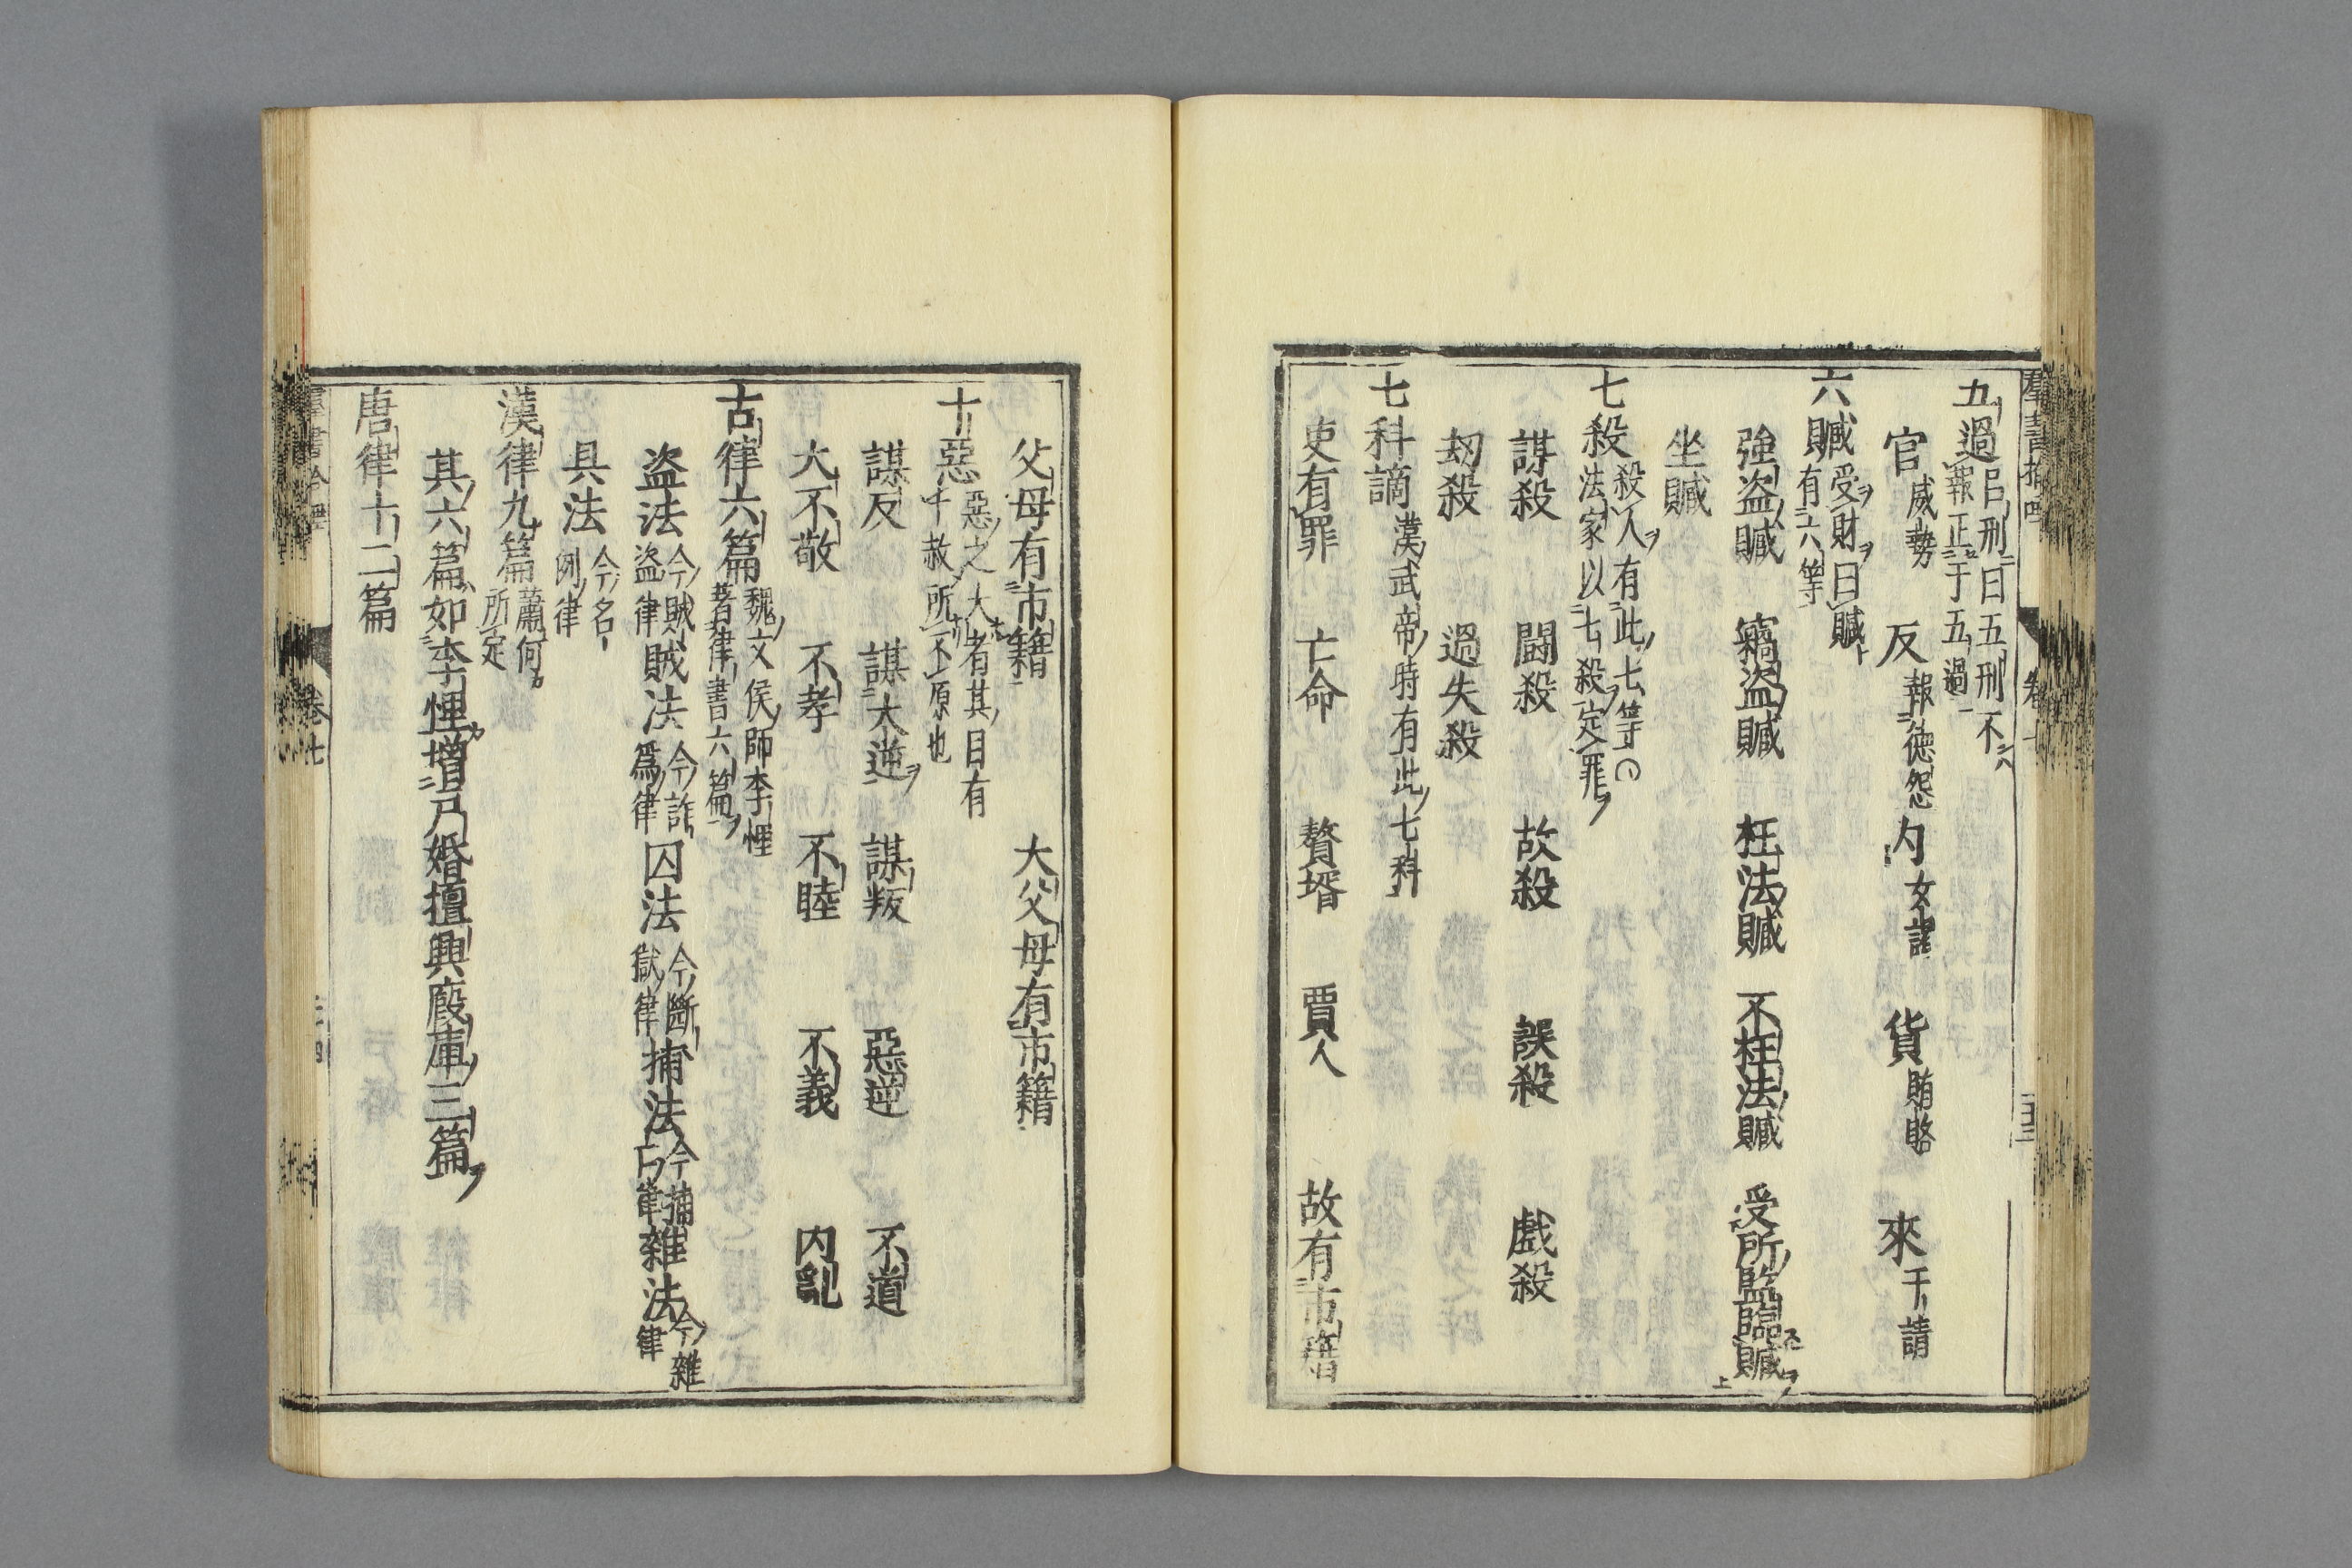 五過 呂刑曰五刑不
報正于五過
官 威勢 反 報德怨 內 女謁 貨 賄賂 來 干請
六贓 受財曰贓
有六等
強盜贓 竊盜贓 枉法贓 不枉法贓 受所監臨贓
坐贓
七殺 殺人有此七等〇
法家以七殺定罪
謀殺 鬪殺 故殺 誤殺 戲殺
刼殺 過失殺
七科謫 漢武帝時有此七科
吏有罪 亡命 贅壻 賈人 故有市籍
父母有市籍 大父母有市籍
十惡 惡之大者其目有
十赦所不原也
謀反 謀大逆 謀叛 惡逆 不道
大不敬 不孝 不睦 不義 內亂
古律六篇 魏文侯師李悝
著律書六篇
盜法 今賊盜律 賊法 今詐爲律 囚法 今斷獄律 捕法 今捕亡律 雜法 今雜律
具法 今名例律
漢律九篇 蕭何所定
其六篇如李悝增戶婚擅興廄庫三篇
唐律十二篇
卷七